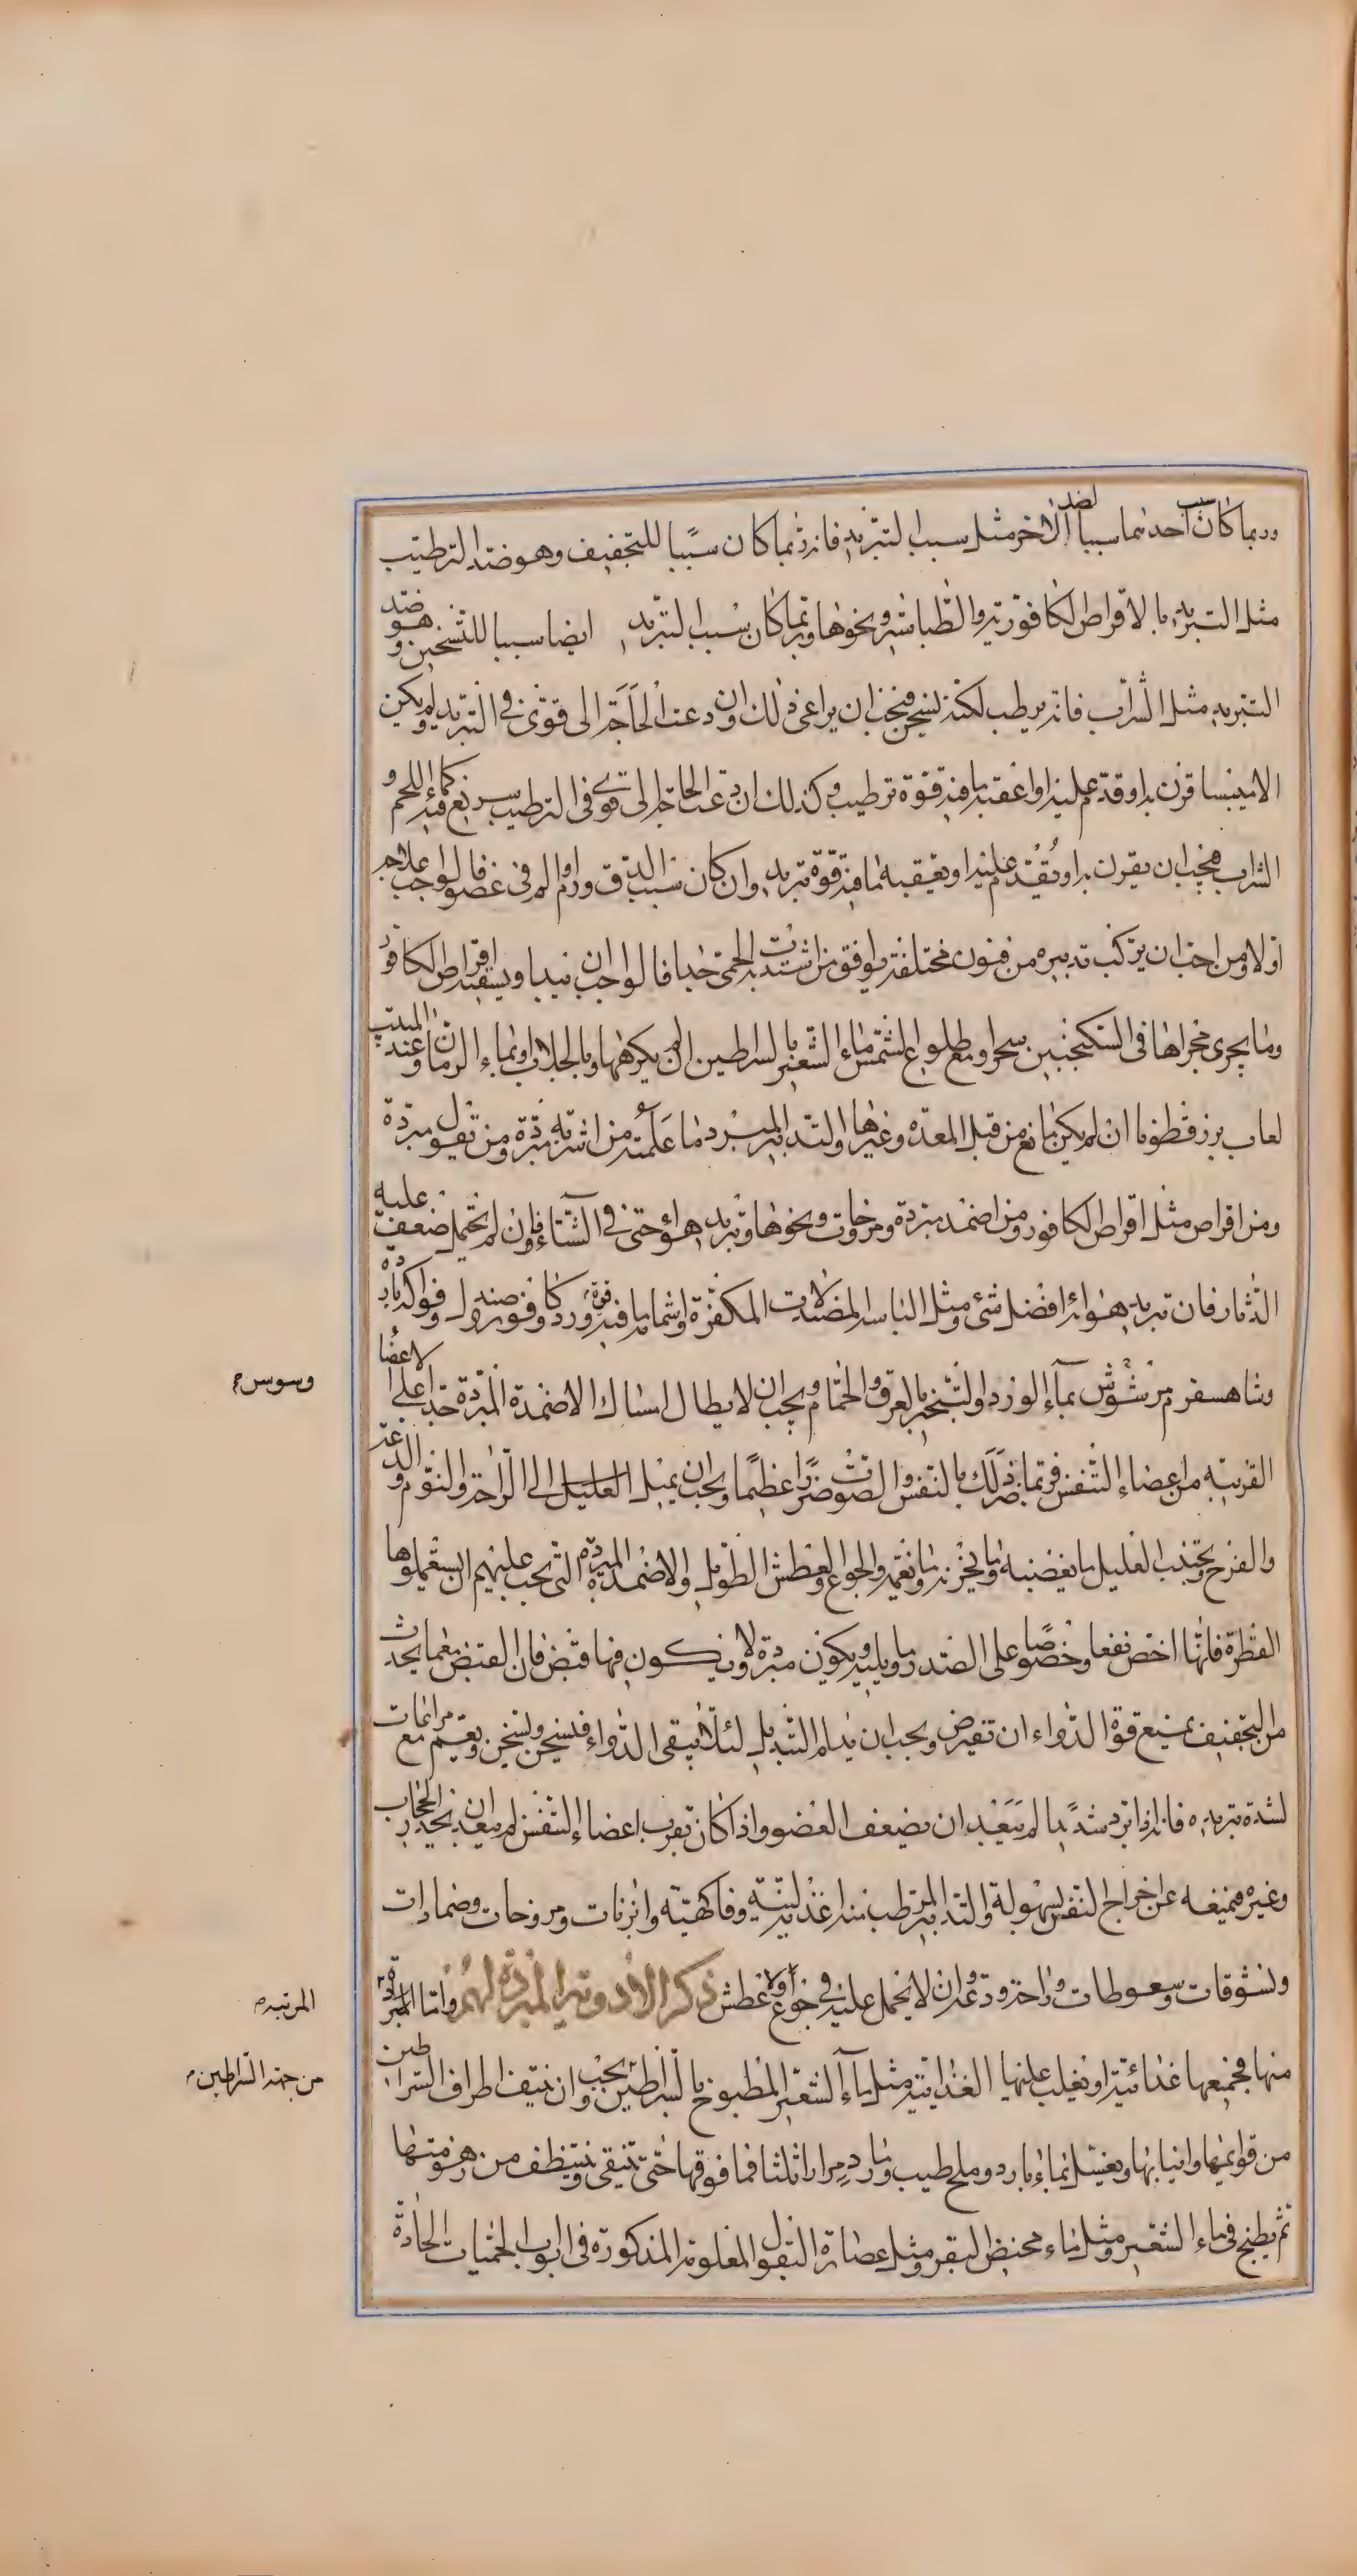 وربما كان سبب احدىهما سببا لضد الاخر مثل سبب التبريد فانه ربما كان سببا للتجفيف وهو ضد الترطيب
مثل التبريد بالاقراص الكافورية والطباشير ونحوها وربما كان سبب التبريد ايضا سببا للتسخين وهو ضد
التبريد مثل الشراب فانه يرطب لكنه يسخن فيجب ان يراعى ذلك وان دعت الحاجة الى قوى في التبريد ولم يكن
الا ميبسا قرن به او قدم عليه او اعقبه ما فيه قوة ترطيب وكذلك ان دعت الحاجة الى قوى فى الترطيب سريع فيه كماء اللحم و
الشراب فيجب ان يقرن به او يقدم عليه او يعقبه بما فيه قوة تبريد وان كان سبب الدق ورم والم فى عضو فالواجب علاجه
اولا ومن احب ان يركب تدبيره من فنون مختلفة يوافق من اشتدت به الحمى جدا فالواجب ان يبدا ويسقيه اقراص الكافور
وما يجرى مجراها فى السكنجبين سحرا ومع طلوع الشمس ماء الشعير بالسراطين ان لم يكرهها وبالجلاب او بماء الرمان وعند المبيت
لعاب بزر قطونا ان لم يكن مانع من قبل المعدة وغيرها والتدابير المبرد ما علمته من اشربة مبردة ومن بقول مبردة
ومن اقراص مثل اقراص الكافور ومن اضمدة مبردة ومروخات ونحوها وتبريد هواء حتى في الشتاء فان لم يحتمل ضعف عليه
الدثار فان تبريد هوائه افضل شئ ومثل الباسه المصندلات المكفرة واشمامه ما فيه قوة ورد وكافور وصندل وفواكه باردة
وشاهسفرم مرشوش بماء الورد والتبخير بالعرق والحمام ويجب ان لا يطال امساك الاضمدة المبردة جدا على الاعضا
القريبة من اعضاء التنفس فربما ضر ذلك بالنفس والصوت ضررا عظيما ويجب ان يميل العليل الى الراحة والنوم والدعة
والفرح ويجتنب العليل ما يغضبه وما يحزنه وما يغمه والجوع والعطش الطويل والاضمدة المبردة التى يجب عليهم ان يستعملوها
الفطرة فانها اخص نفعا وخصوصا على الصدر وما يليه ويكون مبردة لا ويكون فيها قبض فان القبض مع ما يحدث
من التجفيف يمنع قوة الدواء ان تفيض ويجب ان يدام التبديل لئلا يبقى الدواء فيسخن ويسخن ويقيم مع مراعات
لشدة تبريده فانه اذا برد شديدا لم يبعد ان يضعف العضو واذا كان بقرب اعضاء التنفس لم يبعد ان يخدر الحجاب
وغيره فيمنعه عن اخراج النفس بسهولة والتدابير المرطب منه اغذية لبنية وفاكهية وابزنات ومروخات وضمادات
ونشوقات وسعوطات وراحة ودعة وان لا يحمل عليه في جوع اولا عطش ذكر الادوية المبردة لهم واما المبردة
منها فجميعها غذائية او يغلب عليها الغذايية مثل ماء الشعير المطبوخ بالسراطين ويجب ان ينتف اطراف السراطين
من قوايمها وانيابها ويغسل بماء بارد وملح طيب ورماد مرارا ثلثا فما فوقها حتى تنقى وتنظف من زهومتها
ثم يطبخ فى ماء الشعير ومثل ماء مخيض البقر ومثل عصارة البقول المعلومة المذكورة فى ابواب الحميات الحادة
وسوس
المرتبه
من جهة السراطين